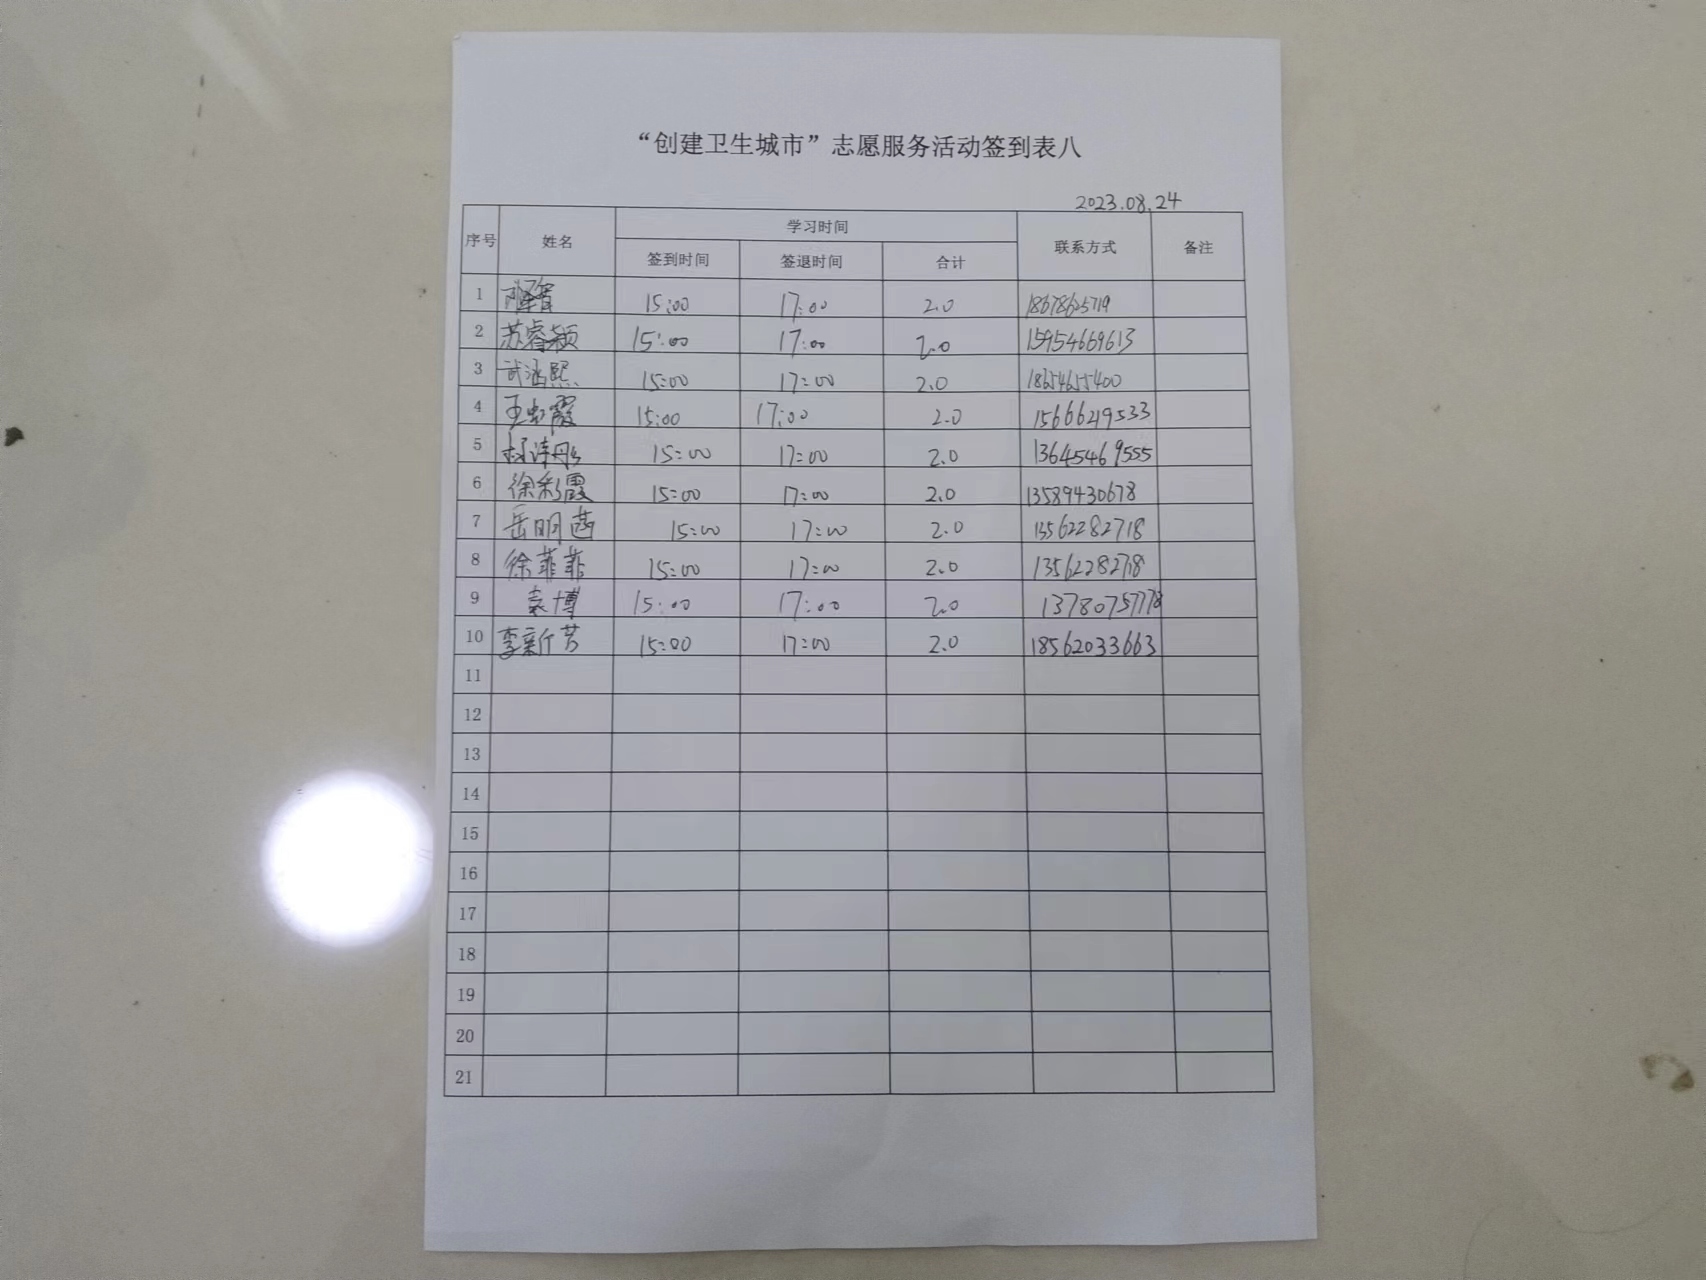 “创建卫生城市”志愿服务活动签到表八
2023.08.24
序号 姓名 学习时间 联系方式 备注
签到时间 签退时间 合计
1 15:00 17:00 2.0 18678625719
2 苏睿颖 15:00 17:00 2.0 15954669613
3 武涵熙 15:00 17:00 2.0 18654655400
4 王虹霞 15:00 17:00 2.0 15666219533
5 15:00 17:00 2.0 13645469555
6 徐彩霞 15:00 17:00 2.0 13589430678
7 岳明茜 15:00 17:00 2.0 13562282718
8 徐菲菲 15:00 17:00 2.0 13562282718
9 袁博 15:00 17:00 2.0 13780757778
10 李新芳 15:00 17:00 2.0 18562033663
11
12
13
14
15
16
17
18
19
20
21